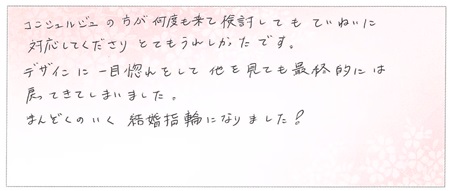 コンシェルジュの方が何度も来て検討してもていねいに
対応してくださりとてもうれしかったです。
デザインに一目惚れをして他を見ても最終的には
戻ってきてしまいました。
まんぞくのいく結婚指輪になりました！